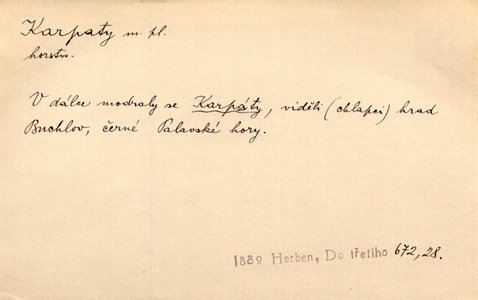 Karpaty m. pl.
horstvo.
V dálce modraly se Karpáty, viděli (chlapci) hrad
Buchlov, černé Palavské hory.
1889 Herben, Do třetího 672,28.